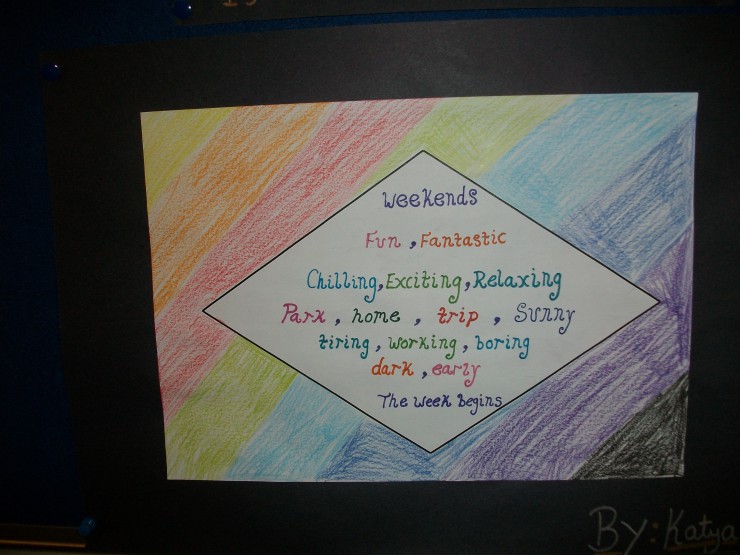 Weekends
Fun , Fantastic
Chilling, Exciting, Relaxing
Park , home , trip , Sunny
tiring , working , boring
dark , early
The week Begins
By: Katya